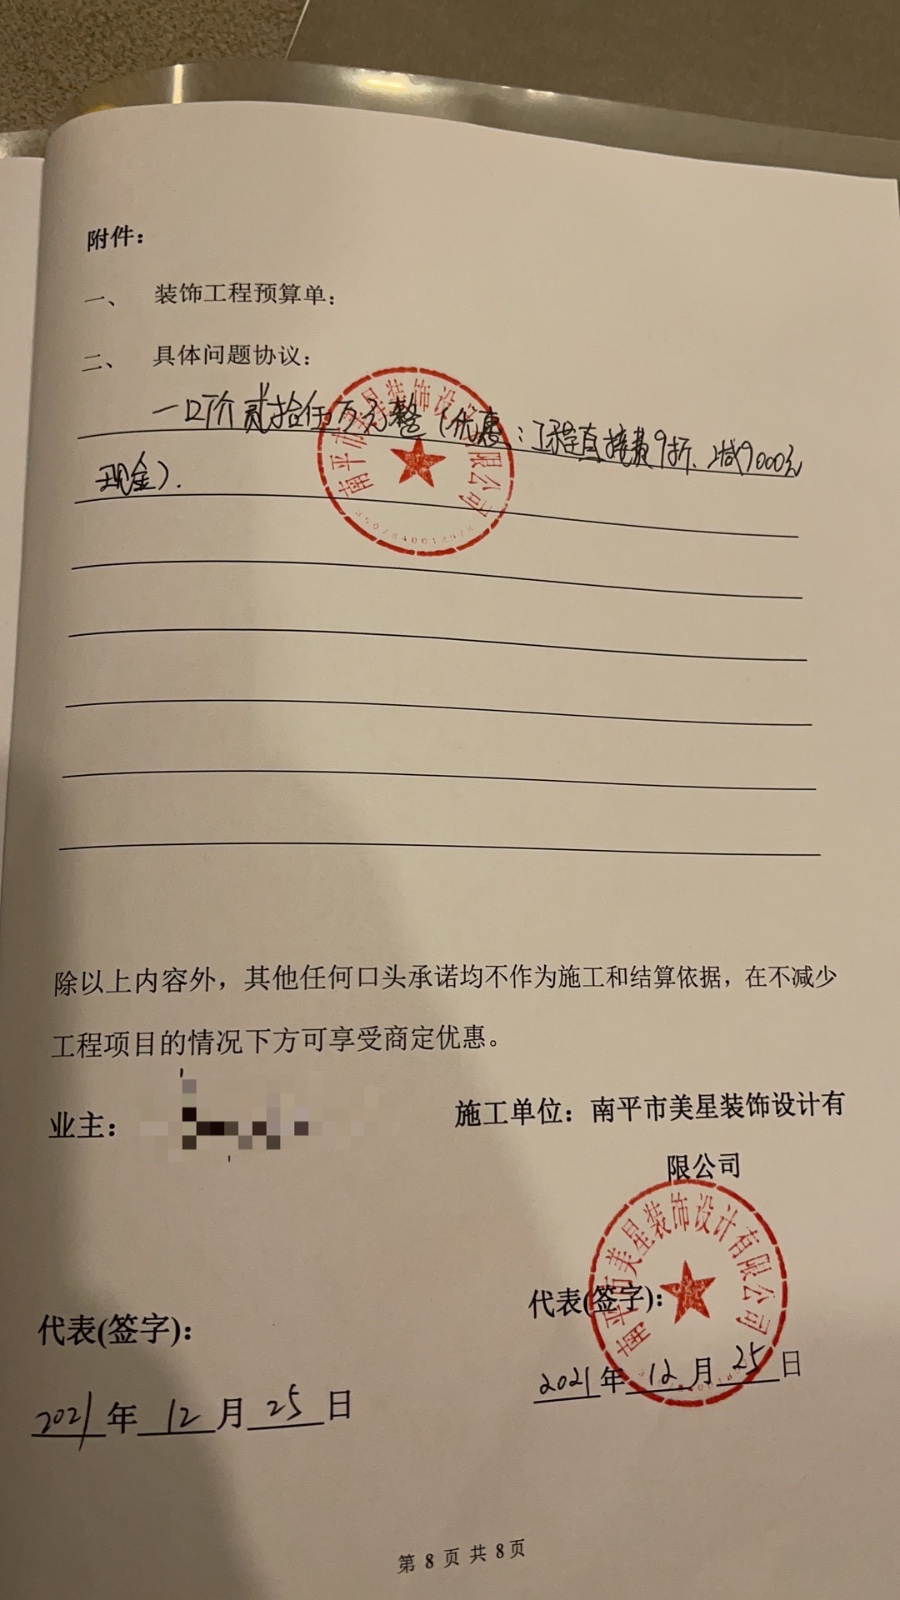 附件：
一、 装饰工程预算单：
二、 具体问题协议：
一口价贰拾伍万元整（优惠：工程直接费9折、减9000元
现金）.
南平市美星装饰设计有限公司
除以上内容外，其他任何口头承诺均不作为施工和结算依据，在不减少
工程项目的情况下方可享受商定优惠。
业主：
施工单位：南平市美星装饰设计有
限公司
南平市美星装饰设计有限公司
代表(签字)：
代表(签字)：
2021年12月25日
2021年12月25日
第 8 页 共 8 页